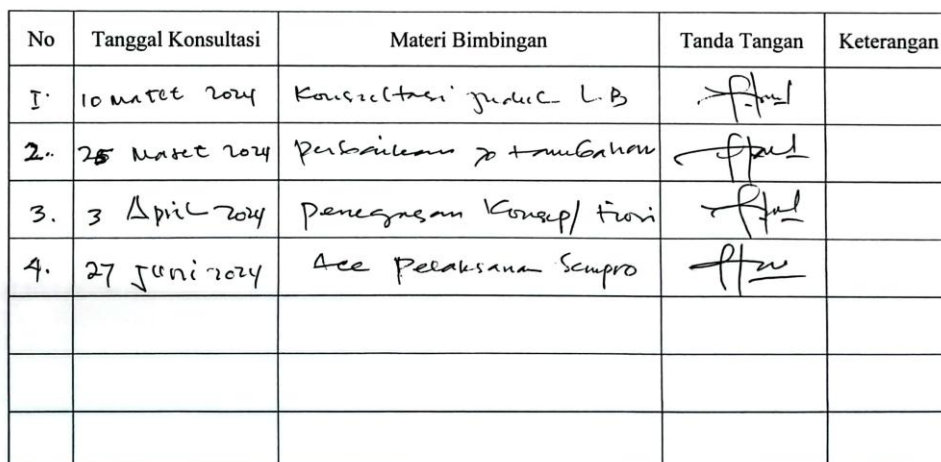 No Tanggal Konsultasi Materi Bimbingan Tanda Tangan Keterangan
1. 10 Maret 2024 Konsultasi Judul L.B
2. 25 Maret 2024 Perbaikan tambahan
3. 3 April 2024 Penegasan Konsep/ Teori
4. 27 Juni 2024 Acc Pelaksanaan Sempro